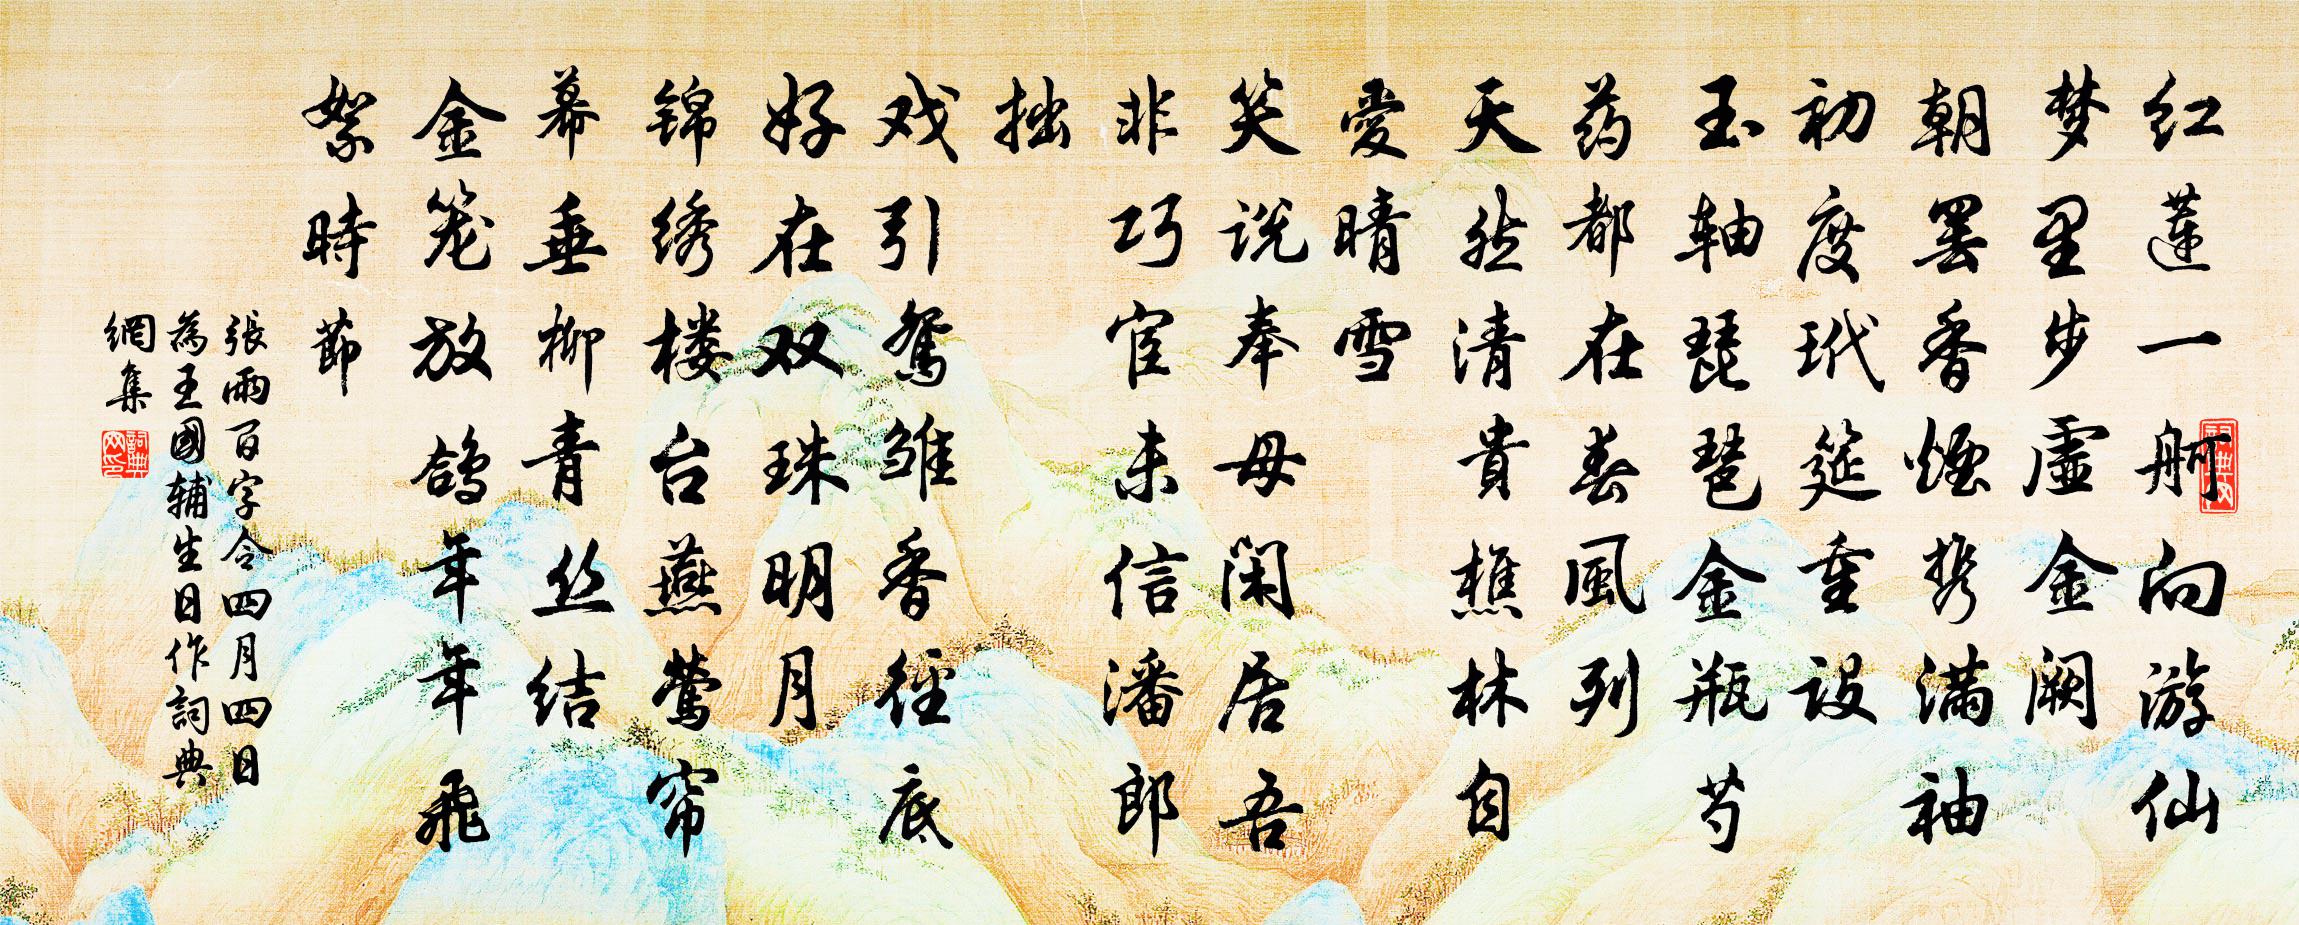 红莲一舸向游仙
梦里步虛金阙
朝罢香煙携满袖
初度玳筵重设
玉轴琵琶金瓶芍
药都在春風列
天然清貴樵林自
愛晴雪
笑说奉母闲居吾
非巧宦未信潘郎
拙
戏引鸳雏香径底
好在双珠明月
锦绣楼台燕莺帘
幕垂柳青丝结
金笼放鸽年年飛
絮時節
張雨百字令四月四日
為王國辅生日作詞典
網集